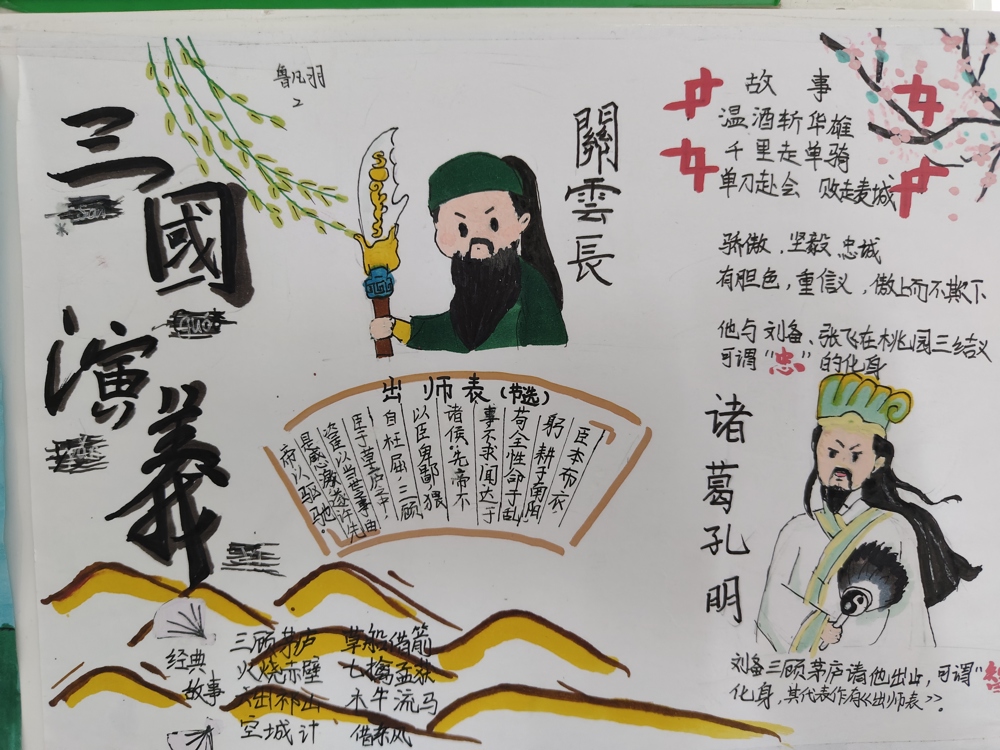 三國演義
鲁凡羽
關雲長
故事
温酒斩华雄
千里走单骑
单刀赴会 败走麦城
骄傲、坚毅 忠诚
有胆色，重信义，傲上而不欺下
他与刘备、张飞在桃园三结义
可谓“忠”的化身
出师表(节选)
臣本布衣，
躬耕于南阳
苟全性命于乱
事不求闻达于
诸侯.先帝不
以臣卑鄙，猥
自枉屈，三顾
臣于草庐之中
谘臣以当世事由
是感激遂许先
帝以驱驰.
诸葛孔明
刘备三顾茅庐请他出山，可谓“智
化身，其代表作有《出师表》.
经典
故事
三顾茅庐 草船借箭
火烧赤壁 七擒孟获
六出祁山 木牛流马
空城计 借东风